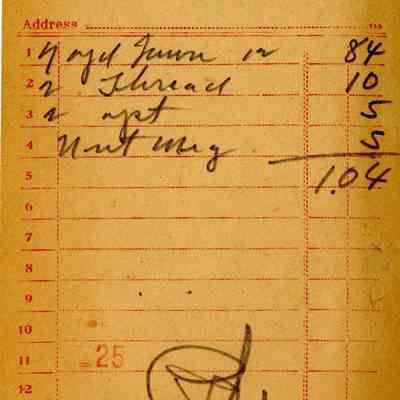 Address
1 7 yd Lawn 12 84
2 2 Thread 10
3 2 5
4 Nutmeg 5
5 1.04
6
7
8
9
10
11 25
12